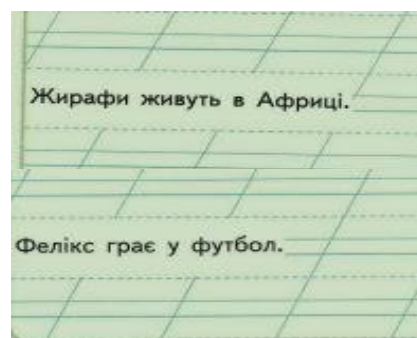 Жирафи живуть в Африці.
Фелікс грає у футбол.